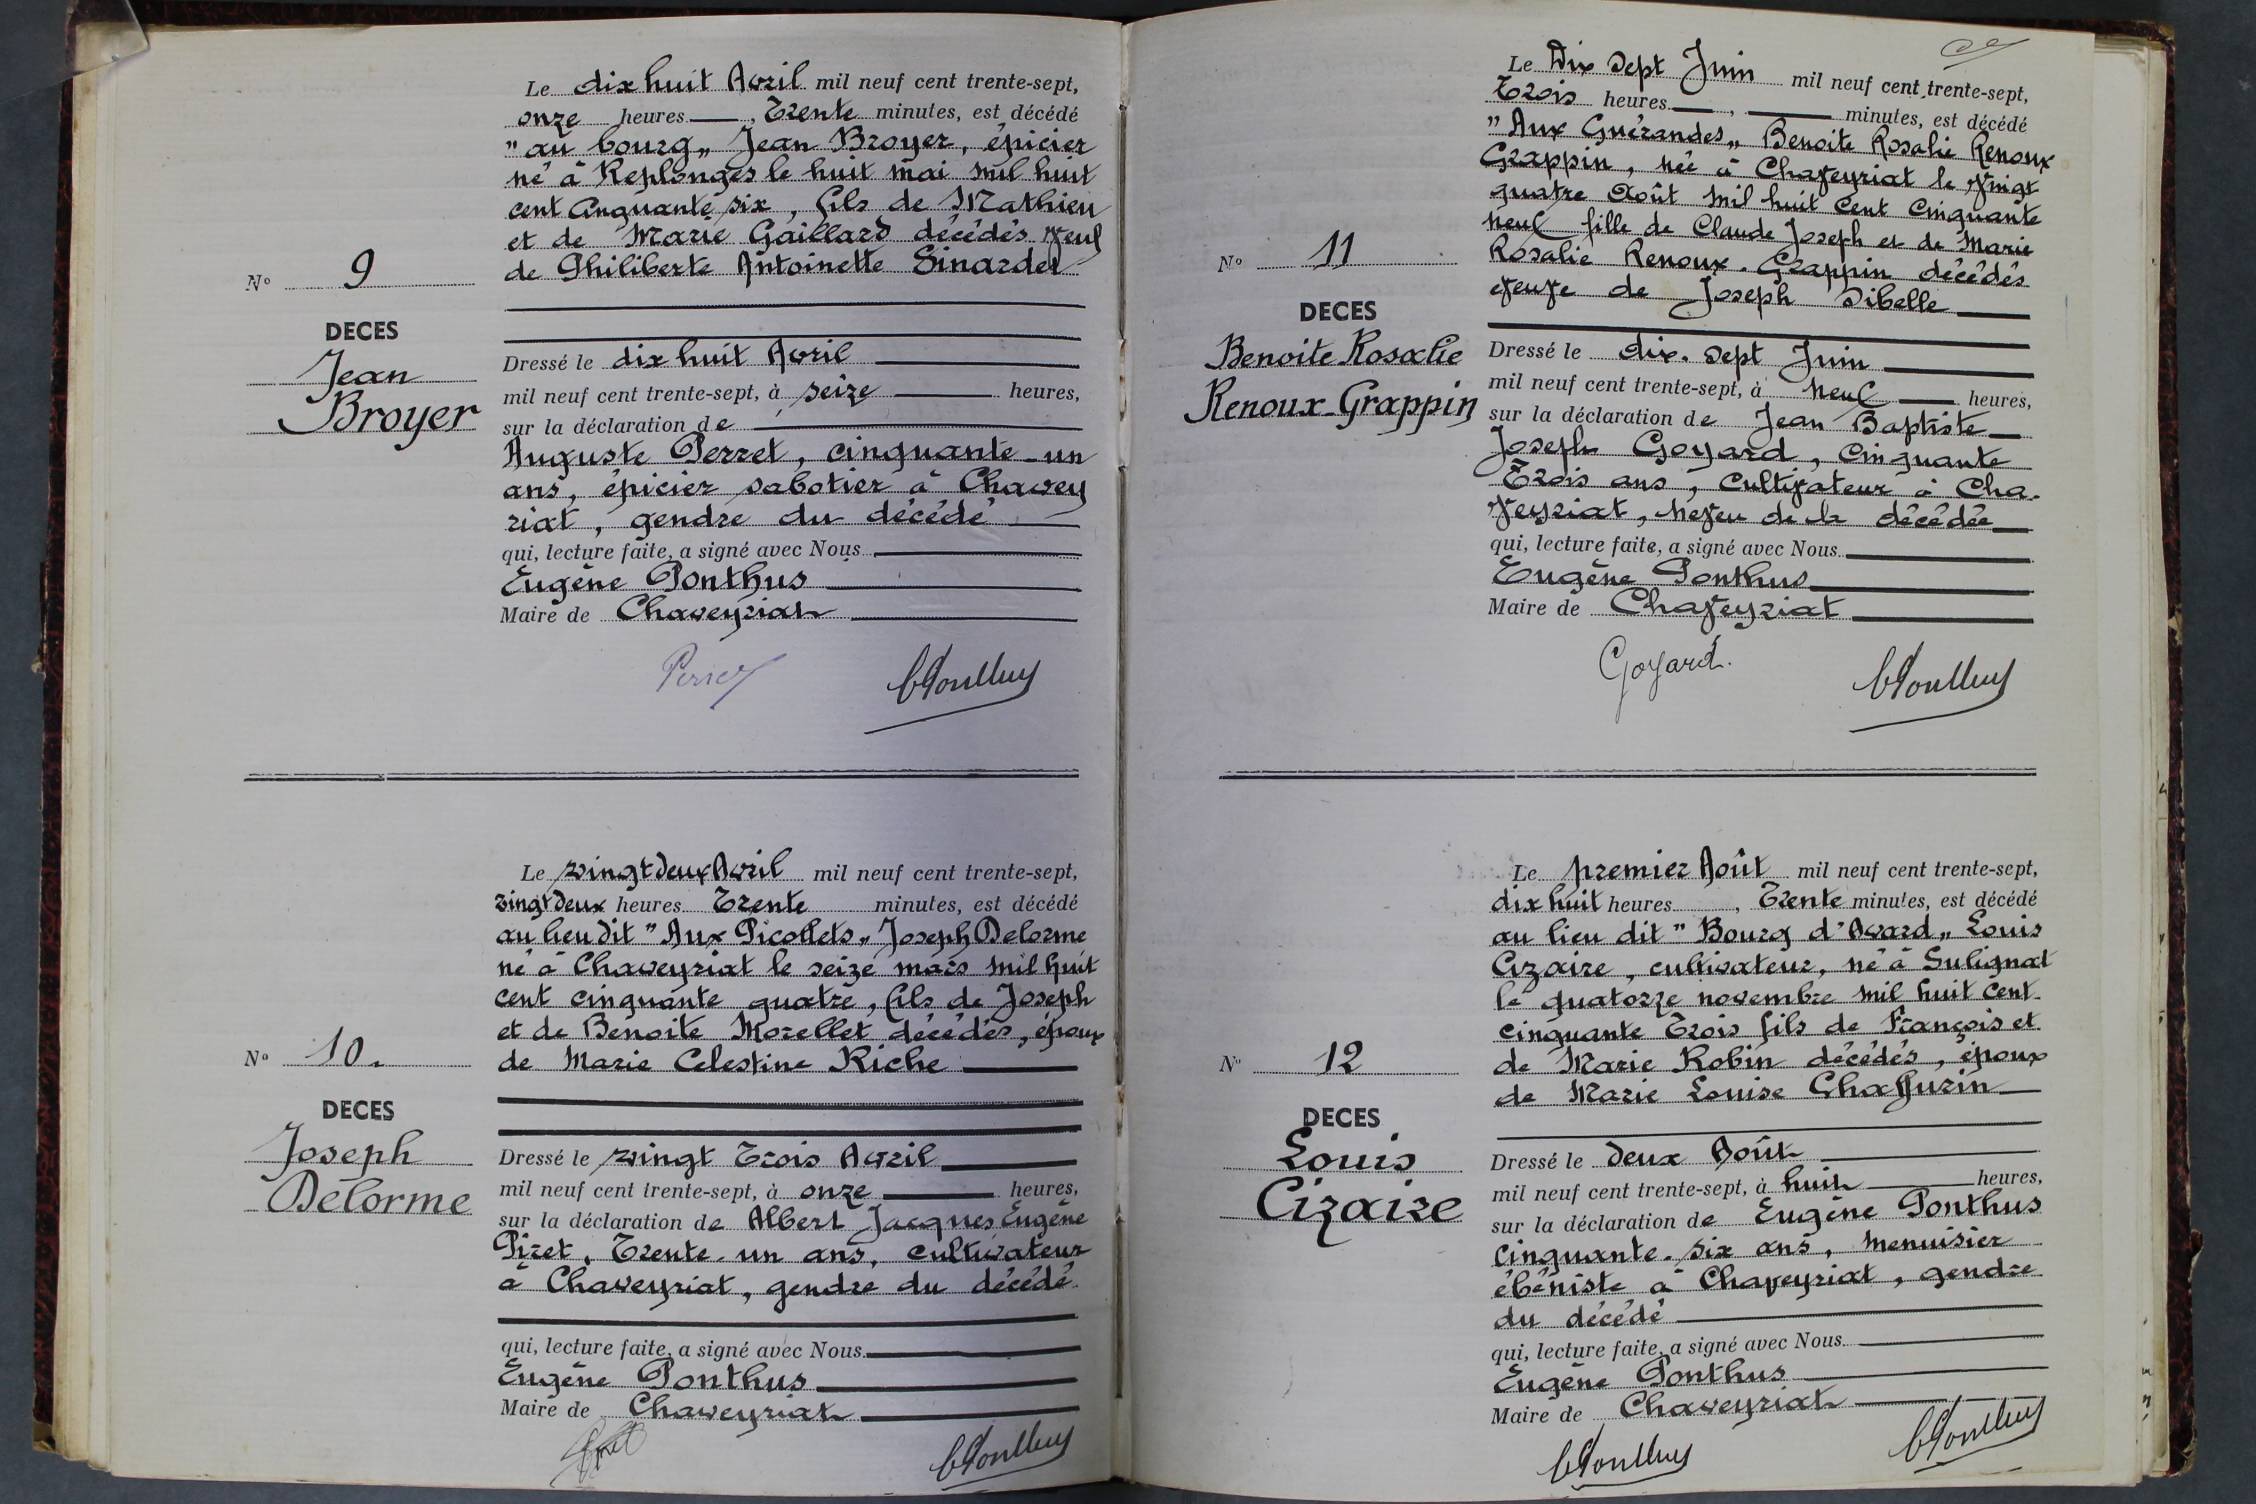 Le dix huit Avril mil neuf cent trente-sept,
onze heures, Trente minutes, est décédé
"au bourg" Jean Broyer, épicier
né à Replonges le huit mai mil huit
cent cinquante six, fils de Mathieu
et de Marie Gaillard décédés veuf
de Philiberte Antoinette Sinardet
N° 9
DECES
Jean
Broyer
Dressé le dix huit Avril
mil neuf cent trente-sept, à seize heures,
sur la déclaration de
Auguste Perret, cinquante-un
ans, épicier sabotier à Chavey
riat, gendre du décédé
qui, lecture faite, a signé avec Nous
Eugène Ponthus
Maire de Chaveyriat
Perret
EPonthus
Le vingt deux Avril mil neuf cent trente-sept,
vingt deux heures Trente minutes, est décédé
au lieu dit "Aux Picollets" Joseph Delorme
né à Chaveyriat le seize mars mil huit
cent cinquante quatre, fils de Joseph
et de Benoite Morellet décédés, époux
de Marie Celestine Riche
N° 10.
DECES
Joseph
Delorme
Dressé le vingt Trois Avril
mil neuf cent trente-sept, à onze heures,
sur la déclaration de Albert Jacques Eugène
Piret, Trente-un ans, cultivateur
à Chaveyriat, gendre du décédé.
qui, lecture faite, a signé avec Nous
Eugène Ponthus
Maire de Chaveyriat
EPonthus
Le Dix sept Juin mil neuf cent trente-sept,
Trois heures, minutes, est décédé
"Aux Guérandes" Benoite Rosalie Renoux
Grappin, née à Chaveyriat le vingt
quatre Août mil huit cent cinquante
neuf fille de Claude Joseph et de Marie
Rosalie Renoux-Grappin décédés
veuve de Joseph Dibelle
N° 11
DECES
Benoite Rosalie
Renoux-Grappin
Dressé le dix-sept Juin
mil neuf cent trente-sept, à neuf heures,
sur la déclaration de Jean Baptiste
Joseph Goyard, cinquante
Trois ans, cultivateur à Cha-
veyriat, neveu de la décédée
qui, lecture faite, a signé avec Nous
Eugène Ponthus
Maire de Chaveyriat
Goyard.
EPonthus
Le premier Août mil neuf cent trente-sept,
dix huit heures, Trente minutes, est décédé
au lieu dit "Bourg d'Avard" Louis
Cizaire, cultivateur, né à Sulignat
le quatorze novembre mil huit cent
cinquante Trois fils de François et
de Marie Robin décédés, époux
de Marie Louise Chaffurin
N° 12
DECES
Louis
Cizaire
Dressé le deux Août
mil neuf cent trente-sept, à huit heures,
sur la déclaration de Eugène Ponthus
cinquante-six ans, menuisier
ébéniste à Chaveyriat, gendre
du décédé
qui, lecture faite, a signé avec Nous
Eugène Ponthus
Maire de Chaveyriat
EPonthus
EPonthus